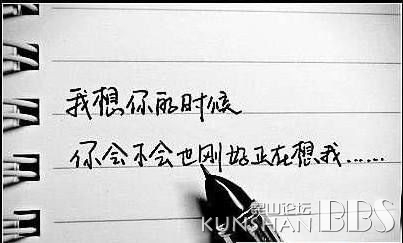 我想你的时候
你会不会也刚好正在想我……
昆山论坛
KUNSHAN BBS